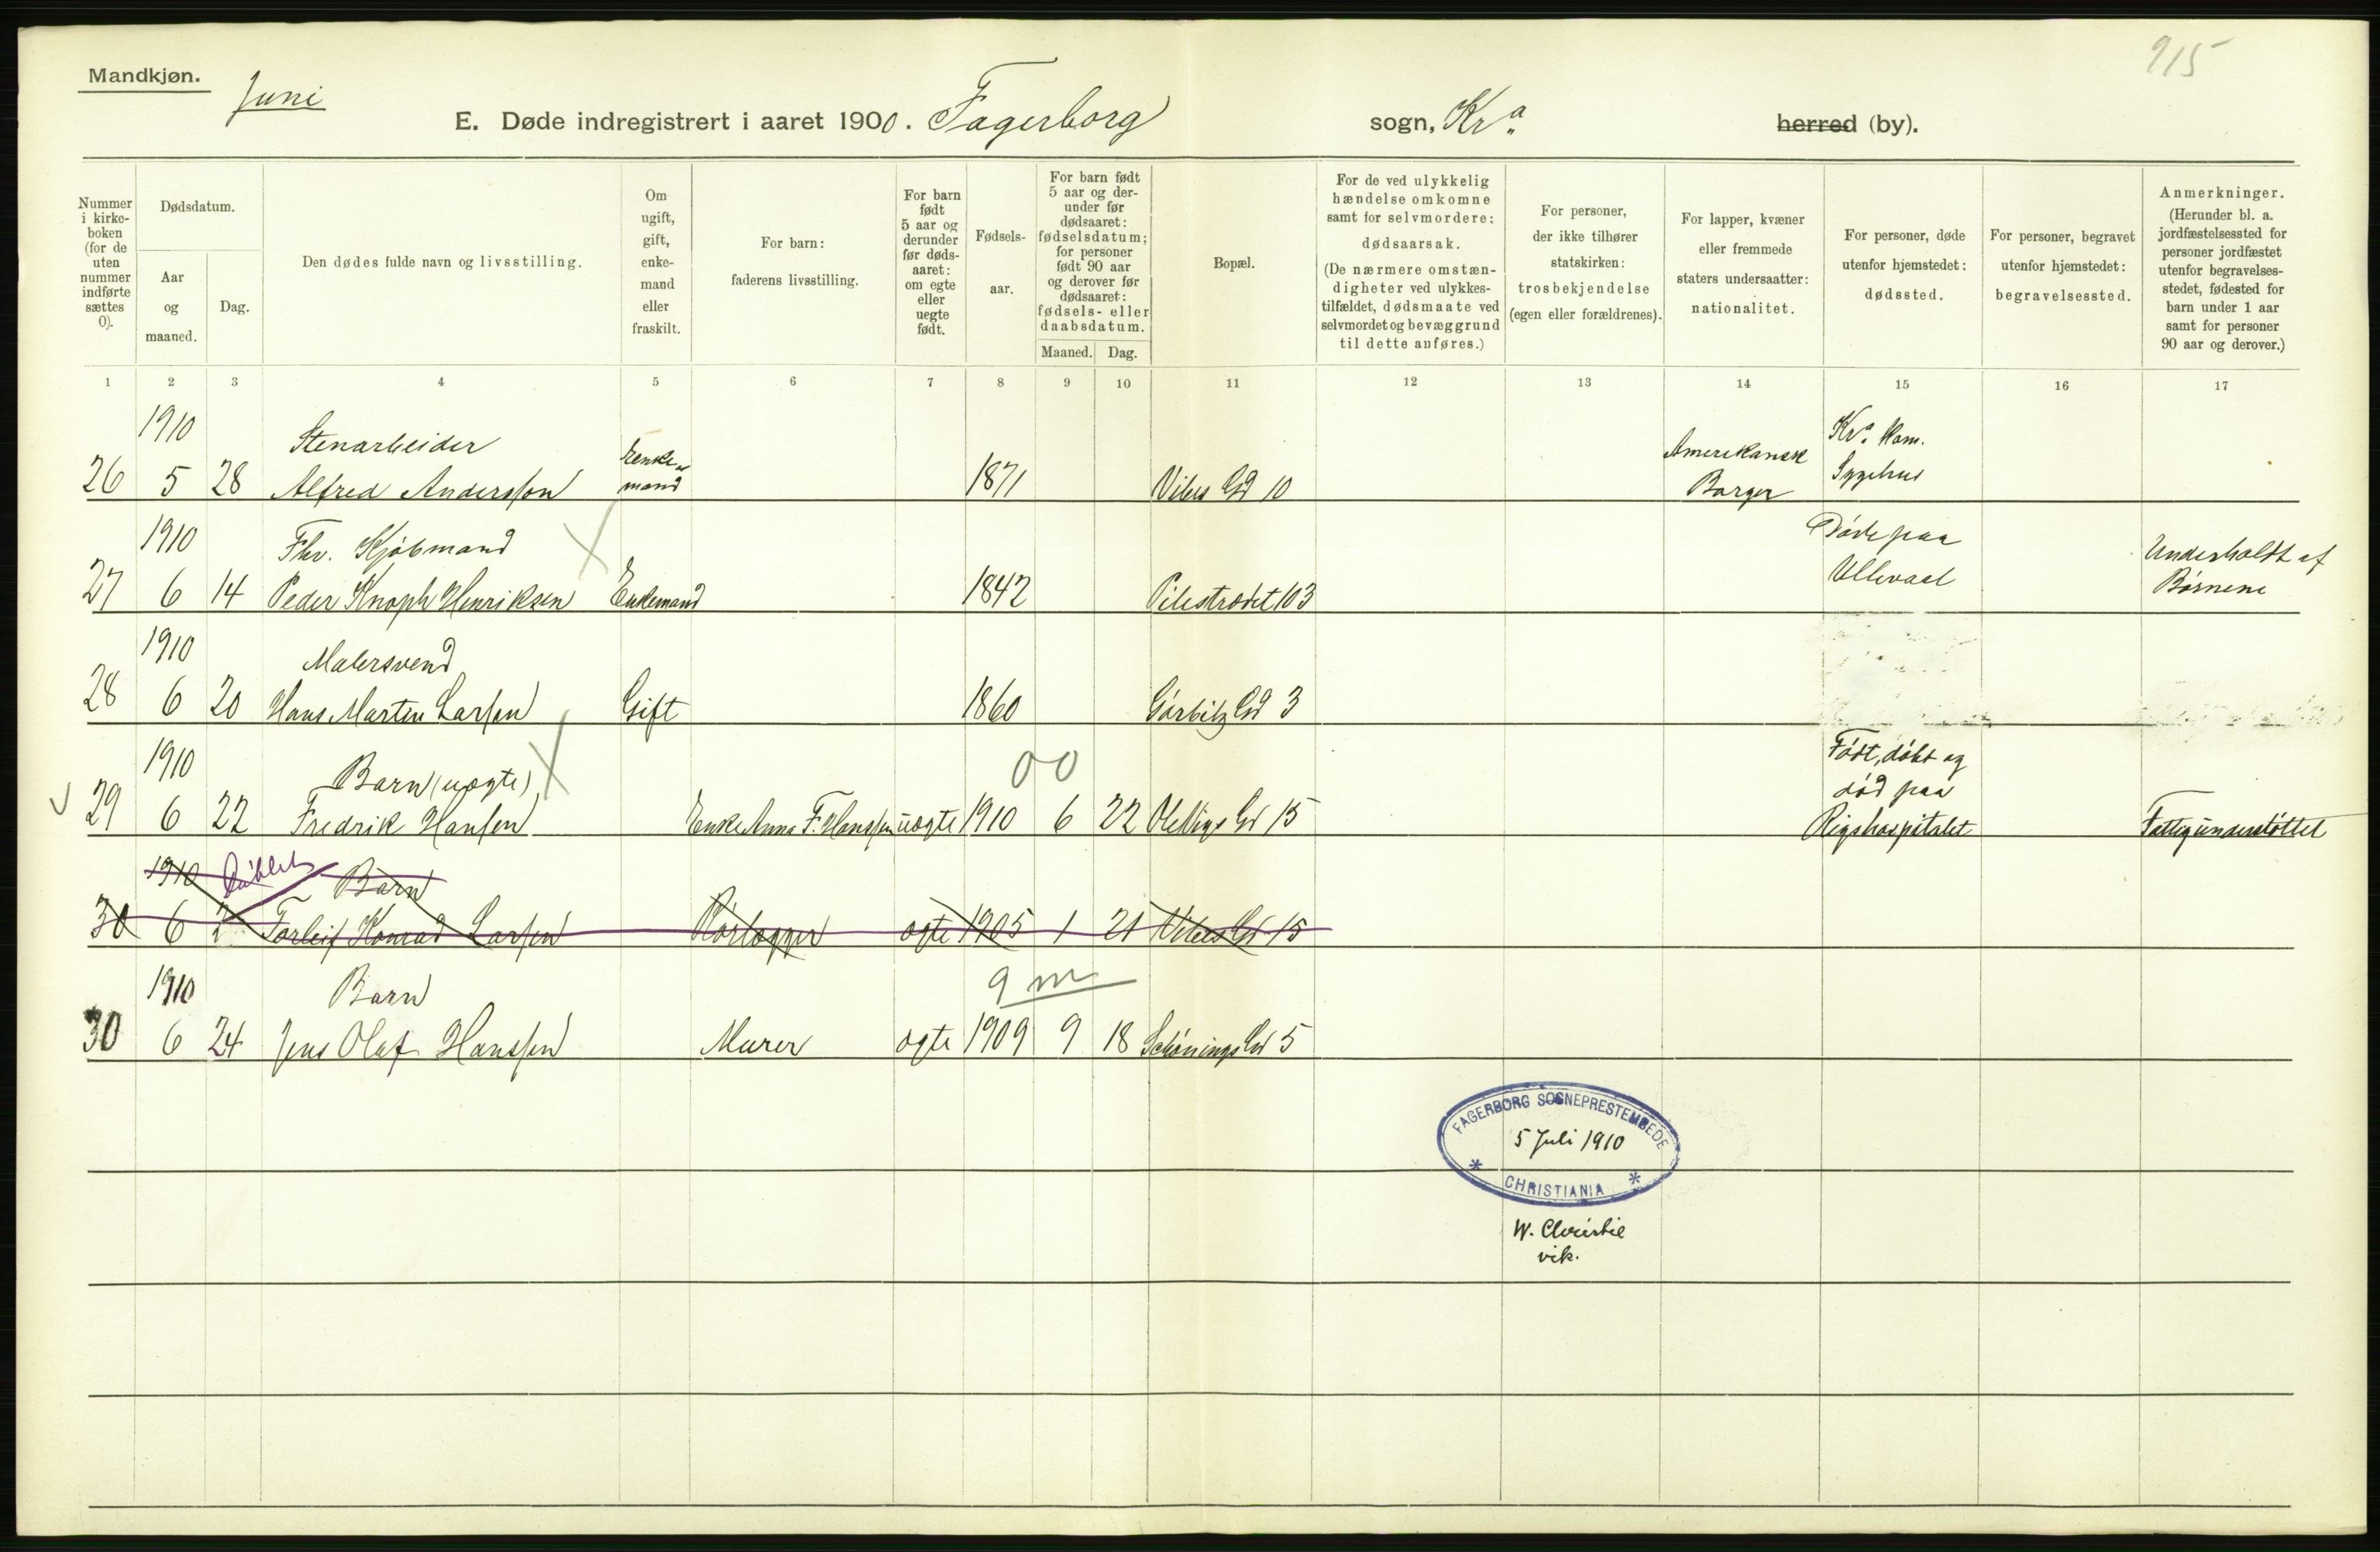 915
Mandkjøn.
Juni
E. Døde indregistrert i aaret 1900. Fagerborg sogn, Kra. herred (by).
Nummer i kirke-boken (for de uten nummer indførte sættes 0).
Dødsdatum.
Aar og maaned.
Dag.
Den dødes fulde navn og livsstilling.
Om ugift, gift, enke-mand eller fraskilt.
For barn: faderens livsstilling.
For barn født 5 aar og derunder før døds-aaret: om egte eller uegte født.
Fødsels-aar.
For barn født 5 aar og der-under før dødsaaret: fødselsdatum; for personer født 90 aar og derover før dødsaaret: fødsels- eller daabsdatum.
Maaned. Dag.
Bopæl.
For de ved ulykkelig hændelse omkomne samt for selvmordere: dødsaarsak. (De nærmere omstæn-digheter ved ulykkes-tilfældet, dødsmaate ved selvmordet og bevæggrund til dette anføres.)
For personer, der ikke tilhører statskirken: trosbekjendelse (egen eller forældrenes).
For lapper, kvæner eller fremmede staters undersaatter: nationalitet.
For personer, døde utenfor hjemstedet: dødssted.
For personer, begravet utenfor hjemstedet: begravelsessted.
Anmerkninger. (Herunder bl. a. jordfæstelsessted for personer jordfæstet utenfor begravelses-stedet, fødested for barn under 1 aar samt for personer 90 aar og derover.)
1 2 3 4 5 6 7 8 9 10 11 12 13 14 15 16 17
1910 Stenarbeider Enke- Amerikansk Kra. Kom.
26 5 28 Alfred Andersson mand 1871 Vibes Gd 10 Borger Sygehus
1910 Fhv. Kjøbmand Døde paa Underholdt af
27 6 14 Peder Knoph Henriksen Enkemand 1842 Pilestrædet 103 Ullevaal Børnene
1910 Malersvend
28 6 20 Hans Martin Larsen Gift 1860 Gørbitz Gd 3
1910 Barn (uægte) 00 Født, døbt og død paa
29 6 22 Fredrik Hansen Enke Anna F. Hanssen uægte 1910 6 22 Gd 15 Rigshospitalet Fattigunderstøttet
1910 Barn
30 6 2 Torleif Konrad Larsen Rørlægger ægte 1905 1 21 Vibes Gd 15
1910 Barn 9 m
30 6 24 Jens Olaf Hanssen Murer ægte 1909 9 18 Schønings Gd 5
FAGERBORG SOGNEPRESTEMBEDE
5 Juli 1910
* CHRISTIANIA *
W. Christie
vik.